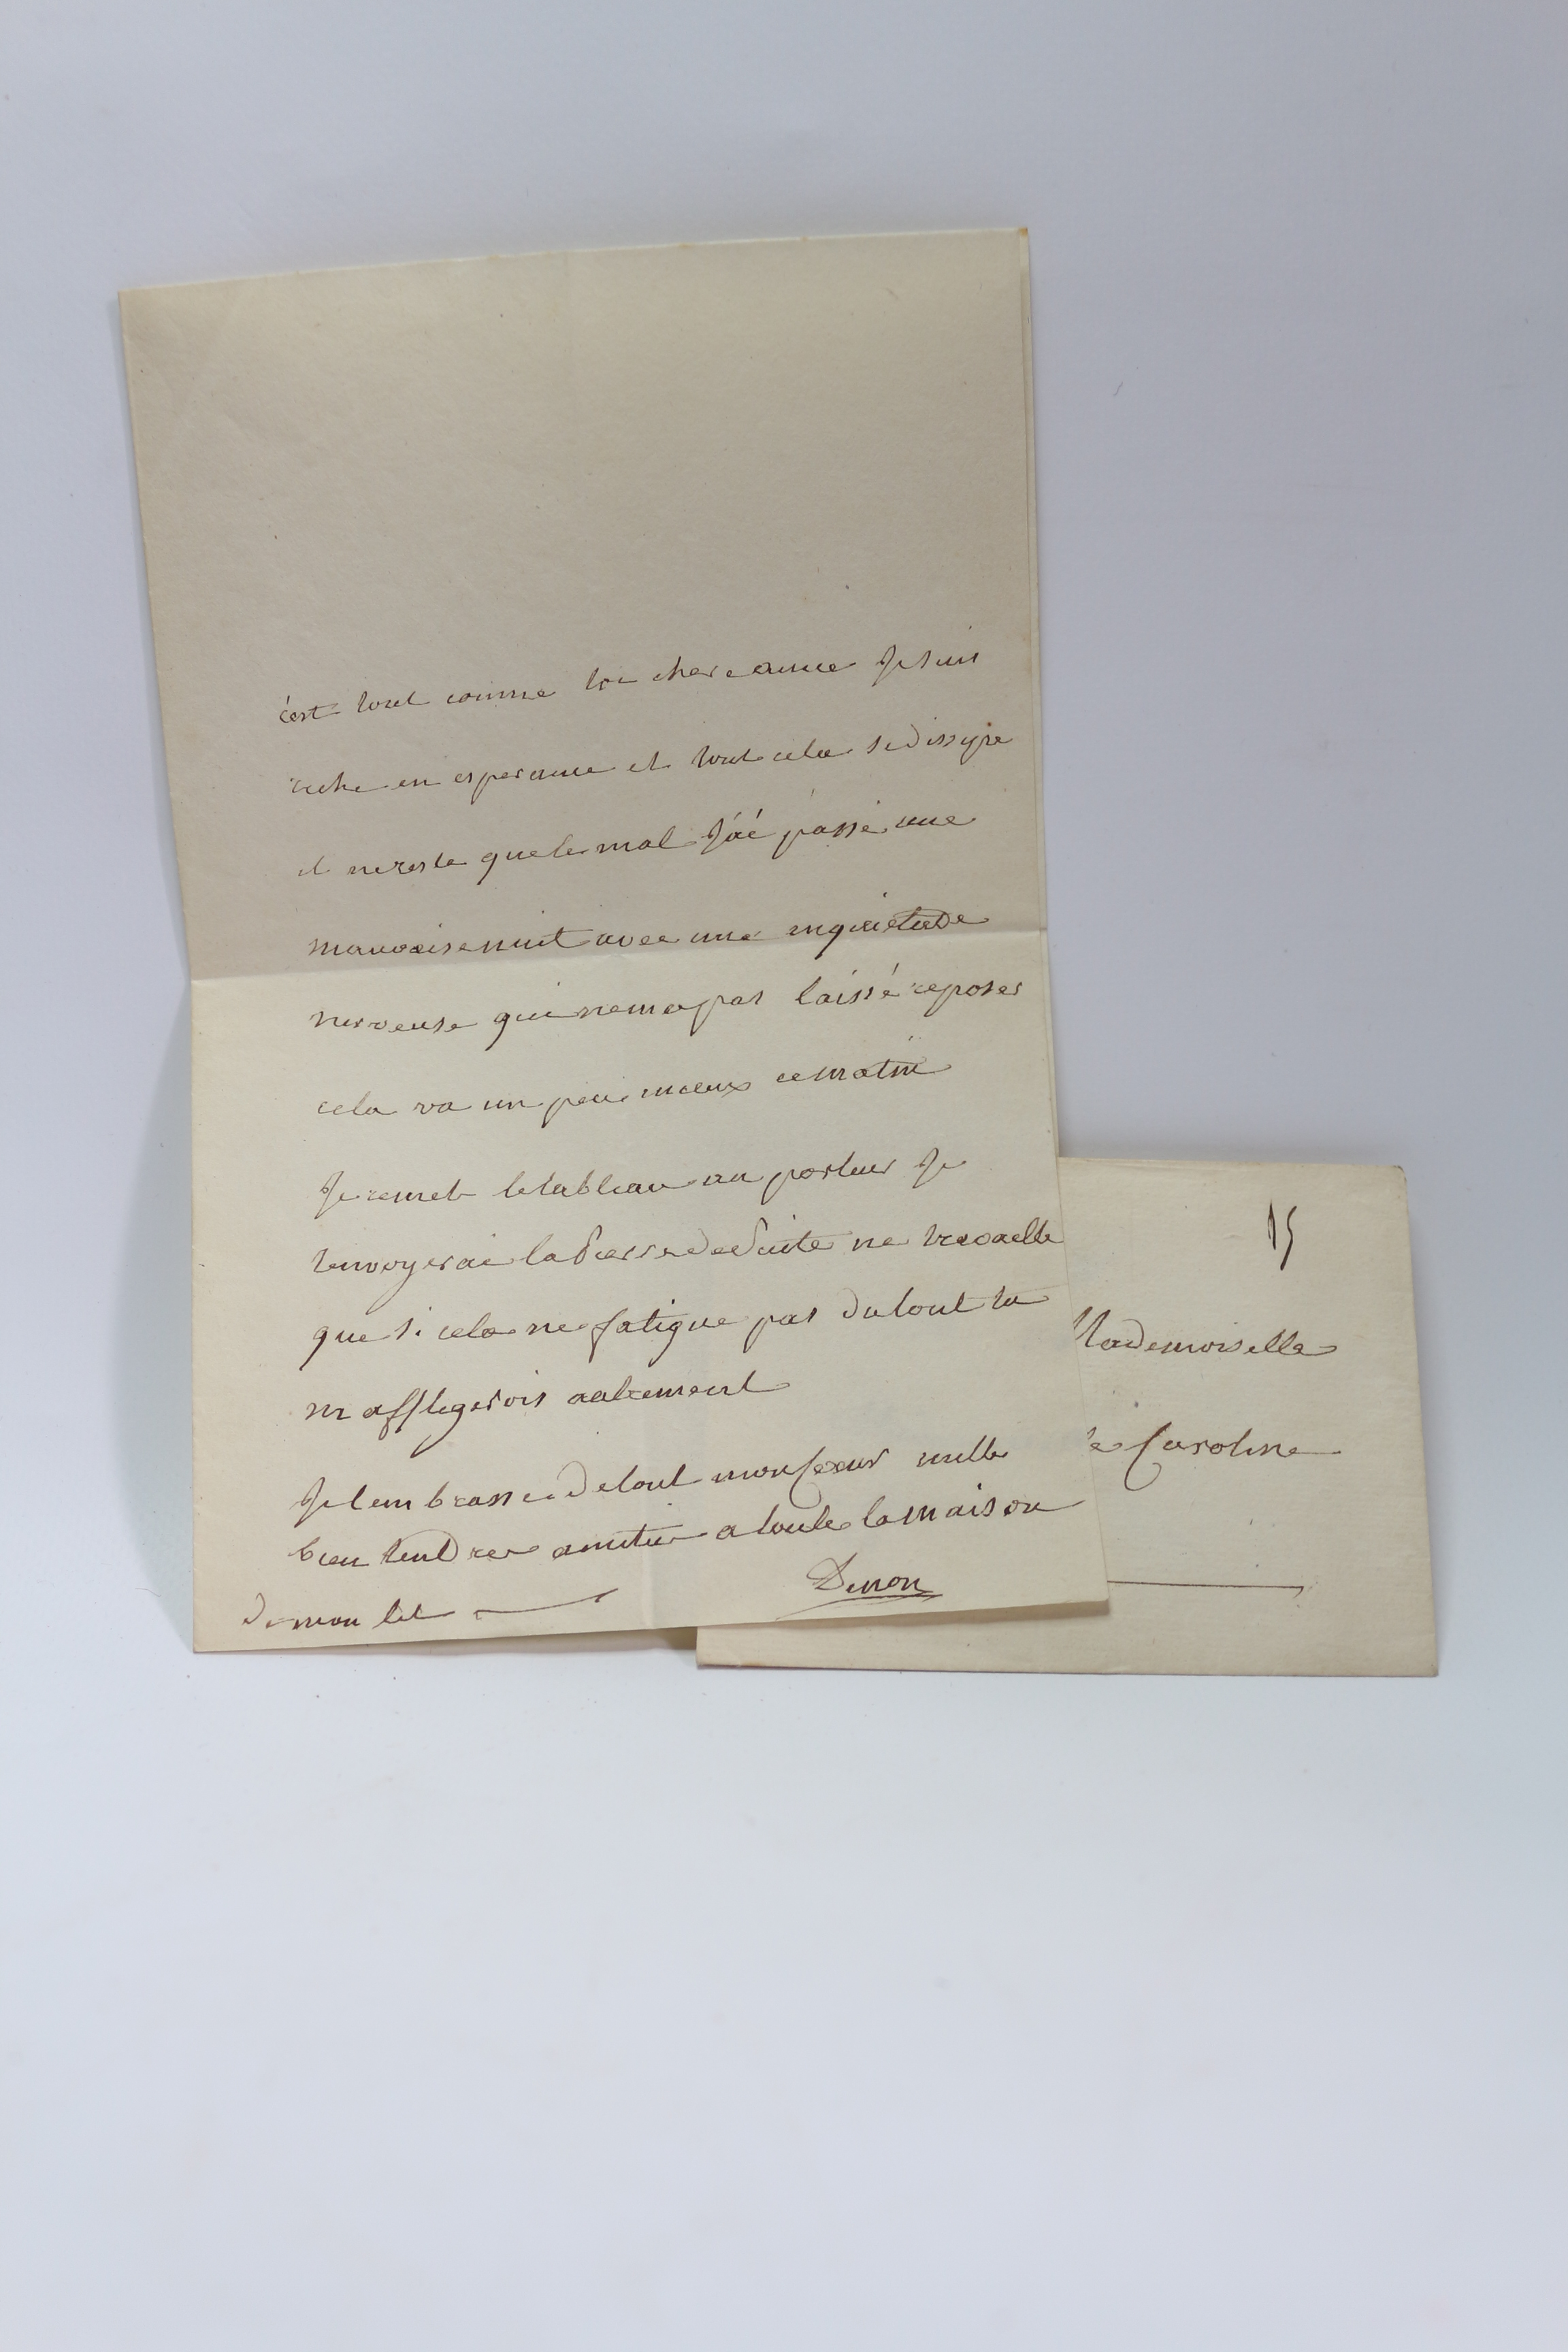 c'est tout comme toi chere amie Je suis
riche en esperance et tout cela se dissipe
il ne reste que le mal J'ai passé une
mauvaise nuit avec une inquietude
nerveuse qui ne ma pas laissé reposer
cela va un peu mieux ce matin
Je remet le tableau au porteur Je
tenvoyerai la Pierre de Suite ne travaille
que si cela ne fatigue pas du tout tu
m affligerois autrement
Je tembrasse de tout mon Coeur mille
bien tendres amitié a toute la maison
de mon lit
Denon
15
Mademoiselle
Caroline